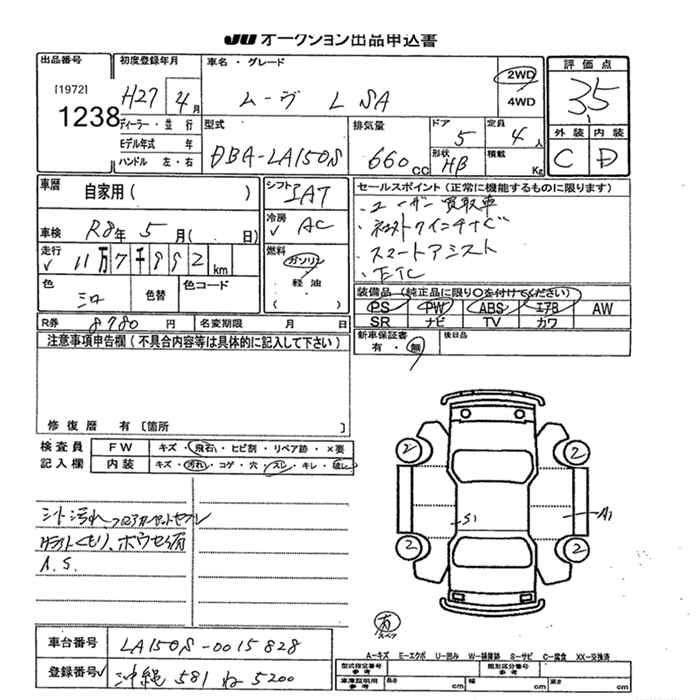 JU オークション出品申込書
出品番号
[1972]
1238
初度登録年月
H27年4月
車名・グレード
ムーヴ L SA
2WD
4WD
評価点
3.5
外装 内装
C D
ディーラー・並行
Eモデル年式 年
ハンドル 左・右
型式
DBA-LA150S
排気量
660cc
ドア
5
形状
HB
定員
4人
積載
Kg
車歴
自家用( )
車検
R8年5月( 日)
走行
11万7千992km
色
シロ
色替
色コード
シフト
IAT
冷房
AC
燃料
ガソリン
軽油
セールスポイント(正常に機能するものに限ります)
・ユーザー買取車
・スマートアシスト
・ETC
装備品(純正品に限り○を付けてください)
PS PW ABS エアB AW
SR ナビ TV カワ
R券 8780円
名変期限 月 日
新車保証書
有・無
後日品
注意事項申告欄(不具合内容等は具体的に記入して下さい)
修復歴 有[箇所 ]
検査員
記入欄
FW キズ・飛石・ヒビ割・リペア跡・×要
内装 キズ・汚れ・コゲ・穴・スレ・キレ・破レ
シート汚れ、フロアカーペットスレ
ライトくもり、ボウセイ有
A.S.
2 2
S1 A1
2 2
有
スペア
車台番号
LA150S-0015828
登録番号
沖縄 581 ね 5200
A-キズ E-エクボ U-凹み W-補修跡 S-サビ C-腐食 XX-交換済
型式指定番号
参考
類別区分番号
参考
車庫証明用
参考
長さ cm 幅 cm 高さ cm